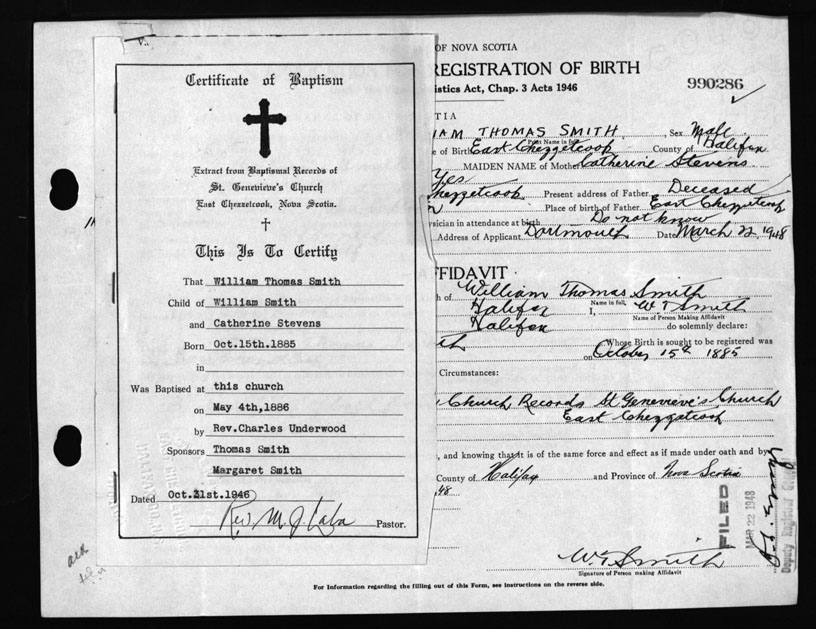 Certificate of Baptism
Extract from Baptismal Records of
St. Genevieve's Church
East Chezzetcook, Nova Scotia.
This Is To Certify
That William Thomas Smith
Child of William Smith
and Catherine Stevens
Born Oct.15th.1885
in
Was Baptised at this church
on May 4th,1886
by Rev.Charles Underwood
Sponsors Thomas Smith
Margaret Smith
Dated Oct.31st.1946
Rev. M. J. Laba Pastor.
OF NOVA SCOTIA
REGISTRATION OF BIRTH
istics Act, Chap. 3 Acts 1946
990286
TIA
IAM THOMAS SMITH, Sex Male
Print Name in full
e of Birth East Chezzetcook County of Halifax
MAIDEN NAME of Mother Catherine Stevens
Yes
Chezzetcook Present address of Father Deceased
Place of birth of Father East Chezzetcook
ysician in attendance at birth Do not know
Address of Applicant Dartmouth Date March 22, 1948
FFIDAVIT
h of William Thomas Smith
Name in full,
Halifax I, W T Smith
Name of Person Making Affidavit
Halifax do solemnly declare:
th Whose Birth is sought to be registered was
on October 15th 1885
Circumstances:
Church Records St Genevieve's Church
East Chezzetcook
, and knowing that it is of the same force and effect as if made under oath and by
County of Halifax and Province of Nova Scotia
48
FILED
MAR 22 1948
Deputy Registrar
W T Smith
Signature of Person making Affidavit
For Information regarding the filling out of this Form, see instructions on the reverse side.